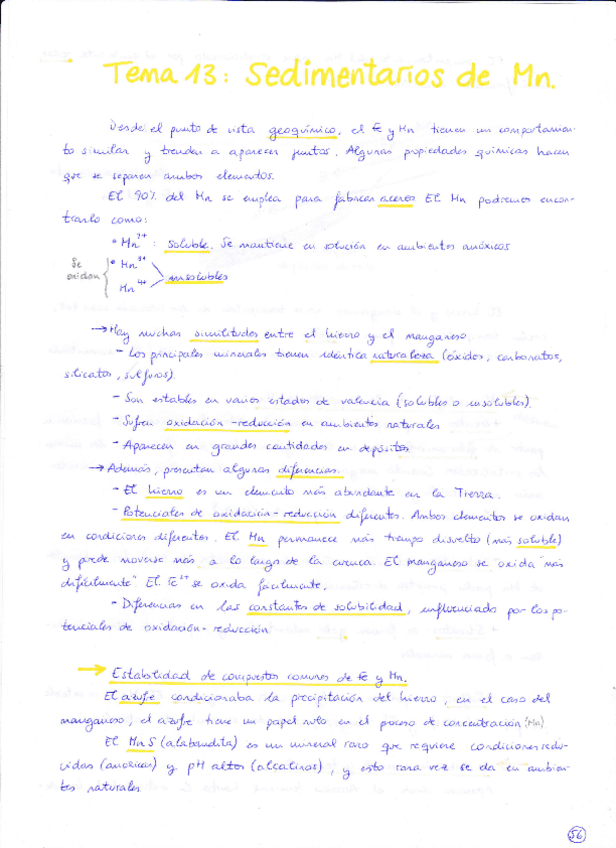 Tema 13: Sedimentarios de Mn.
Desde el punto de vista geoquímico, el Fe y Mn tienen un comportamien-
to similar y tienden a aparecer juntos. Algunas propiedades químicas hacen
que se separen ambos elementos.
El 90% del Mn se emplea para fabricar aceros. El Mn podremos encon-
trarlo como:
• Mn2+ : soluble. Se mantiene en solución en ambientes anóxicos
Se oxidan { • Mn3+
Mn4+ insolubles
→ Hay muchas similitudes entre el hierro y el manganeso
- Los principales minerales tienen idéntica naturaleza (óxidos, carbonatos,
silicatos, sulfuros).
- Son estables en varios estados de valencia (solubles o insolubles).
- Sufren oxidación-reducción en ambientes naturales
- Aparecen en grandes cantidades en depósitos
→ Además, presentan algunas diferencias.
- El hierro es un elemento más abundante en la Tierra.
- Potenciales de oxidación-reducción diferentes. Ambos elementos se oxidan
en condiciones diferentes. El Mn permanece más tiempo disuelto (más soluble)
y puede moverse más a lo largo de la cuenca. El manganeso se oxida "más
difícilmente" El Fe2+ se oxida fácilmente.
- Diferencias en las constantes de solubilidad, influenciado por los po-
tenciales de oxidación-reducción
→ Estabilidad de compuestos comunes de Fe y Mn.
El azufre condicionaba la precipitación del hierro, en el caso del
manganeso, el azufre tiene un papel nulo en el proceso de concentración (Mn)
El MnS (alabandita) es un mineral raro que requiere condiciones redu-
cidas (anóxicas) y pH altos (alcalinos), y esto rara vez se da en ambien-
tes naturales
56